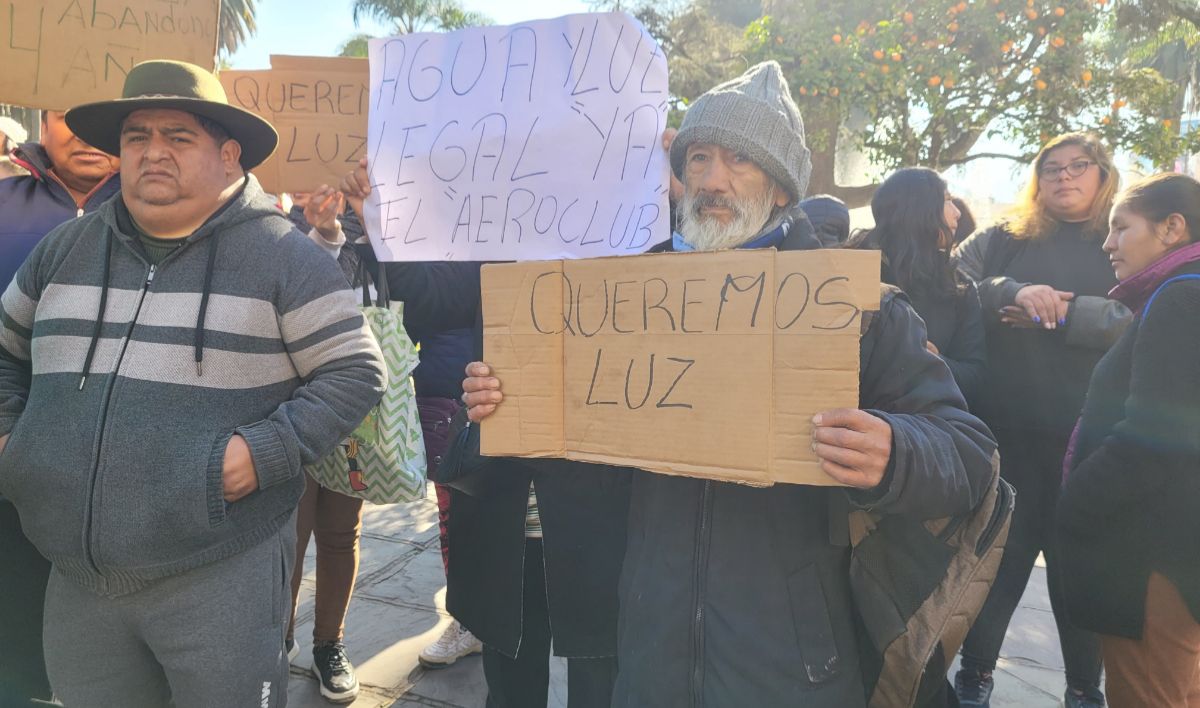 ABANDONO
4 AÑ
QUEREM
LUZ
AGUA Y LUZ
LEGAL "YA"
EL "AEROCLUB"
QUEREMOS
LUZ